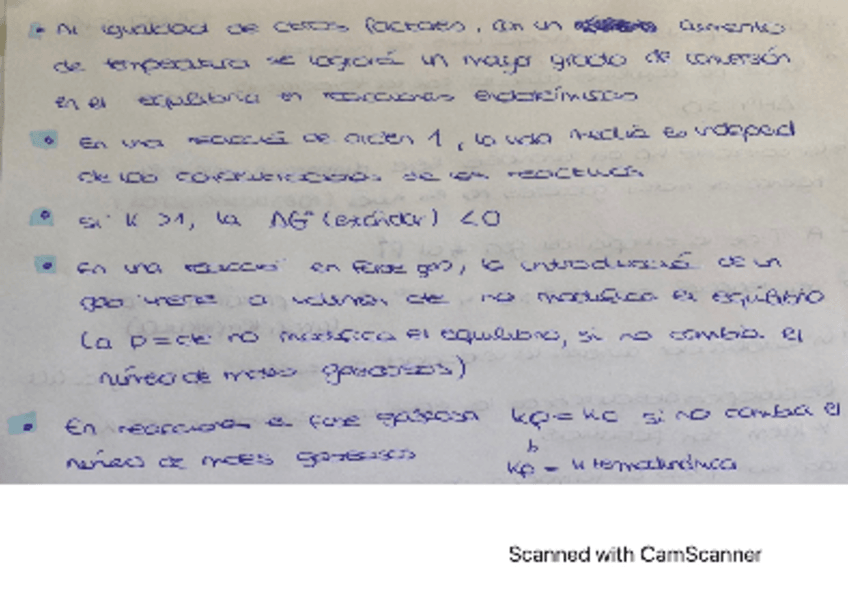 A igualdad de otros factores, con un aumento
de temperatura se logrará un mayor grado de conversión
en el equilibrio en reacciones endotérmicas
En una reacción de orden 1, la vida media es independ
de las concentraciones de los reactivos
si K >1, la ΔG° (estándar) <0
En una reacción en fase gas, la introducción de un
gas inerte a volumen cte no modifica el equilibrio
(a P=cte no modifica el equilibrio, si no cambia el
número de moles gaseosos)
En reacciones en fase gaseosa Kp = Kc si no cambia el
número de moles gaseosos Kp = K termodinámica
Scanned with CamScanner